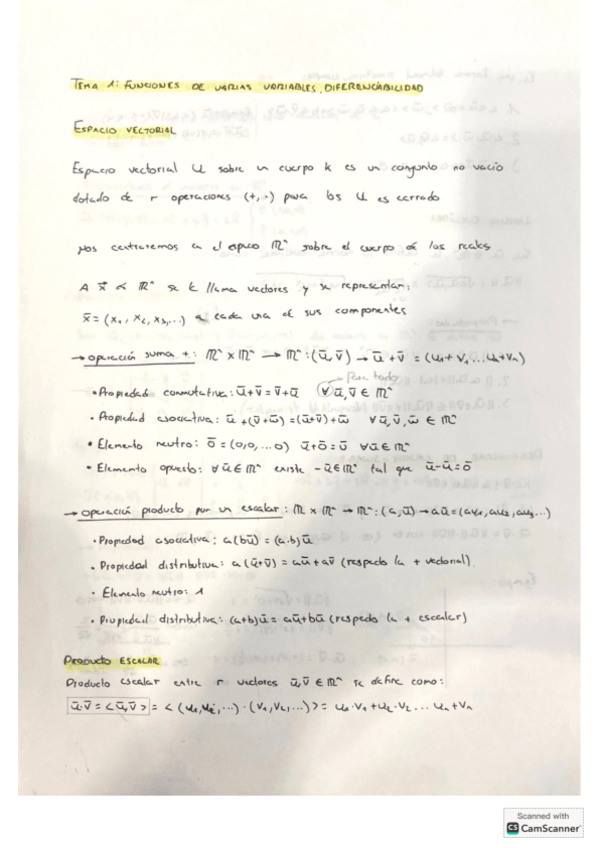 TEMA 1: FUNCIONES DE VARIAS VARIABLES, DIFERENCIABILIDAD
ESPACIO VECTORIAL
Espacio vectorial U sobre un cuerpo k es un conjunto no vacío
dotado de r operaciones (+,·) para los U es cerrado
Nos centraremos en el espacio ℝⁿ sobre el cuerpo de los reales
A x⃗ ∈ ℝⁿ se le llama vectores y se representan:
x̄ = (x₁, x₂, x₃,...) cada una de sus componentes
→ operación suma +: ℝⁿ x ℝⁿ → ℝⁿ: (ū, v̄) → ū + v̄ = (u₁ + v₁ ... uₙ + vₙ)
Para todo
• Propiedad conmutativa: ū + v̄ = v̄ + ū ∀ ū, v̄ ∈ ℝⁿ
• Propiedad asociativa: ū + (v̄ + w̄) = (ū + v̄) + w̄ ∀ ū, v̄, w̄ ∈ ℝⁿ
• Elemento neutro: ō = (0,0, ... 0) ū + ō = ū ∀ ū ∈ ℝⁿ
• Elemento opuesto: ∀ ū ∈ ℝⁿ existe -ū ∈ ℝⁿ tal que ū - ū = ō
→ operación producto por un escalar: ℝ x ℝⁿ → ℝⁿ: (a, ū) → aū = (au₁, au₂, au₃...)
• Propiedad asociativa: a(bū) = (a.b)ū
• Propiedad distributiva: a(ū + v̄) = aū + av̄ (respecto la + vectorial).
• Elemento neutro: 1
• Propiedad distributiva: (a+b)ū = aū + bū (respecto la + escalar)
PRODUCTO ESCALAR
Producto escalar entre r vectores ū, v̄ ∈ ℝⁿ se define como:
ū·v̄ = <ū, v̄> = <(u₁, u₂, ...)·(v₁, v₂, ...)> = u₁·v₁ + u₂·v₂ ... uₙ + vₙ
Scanned with
CS CamScanner